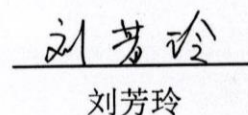 刘芳玲
刘芳玲